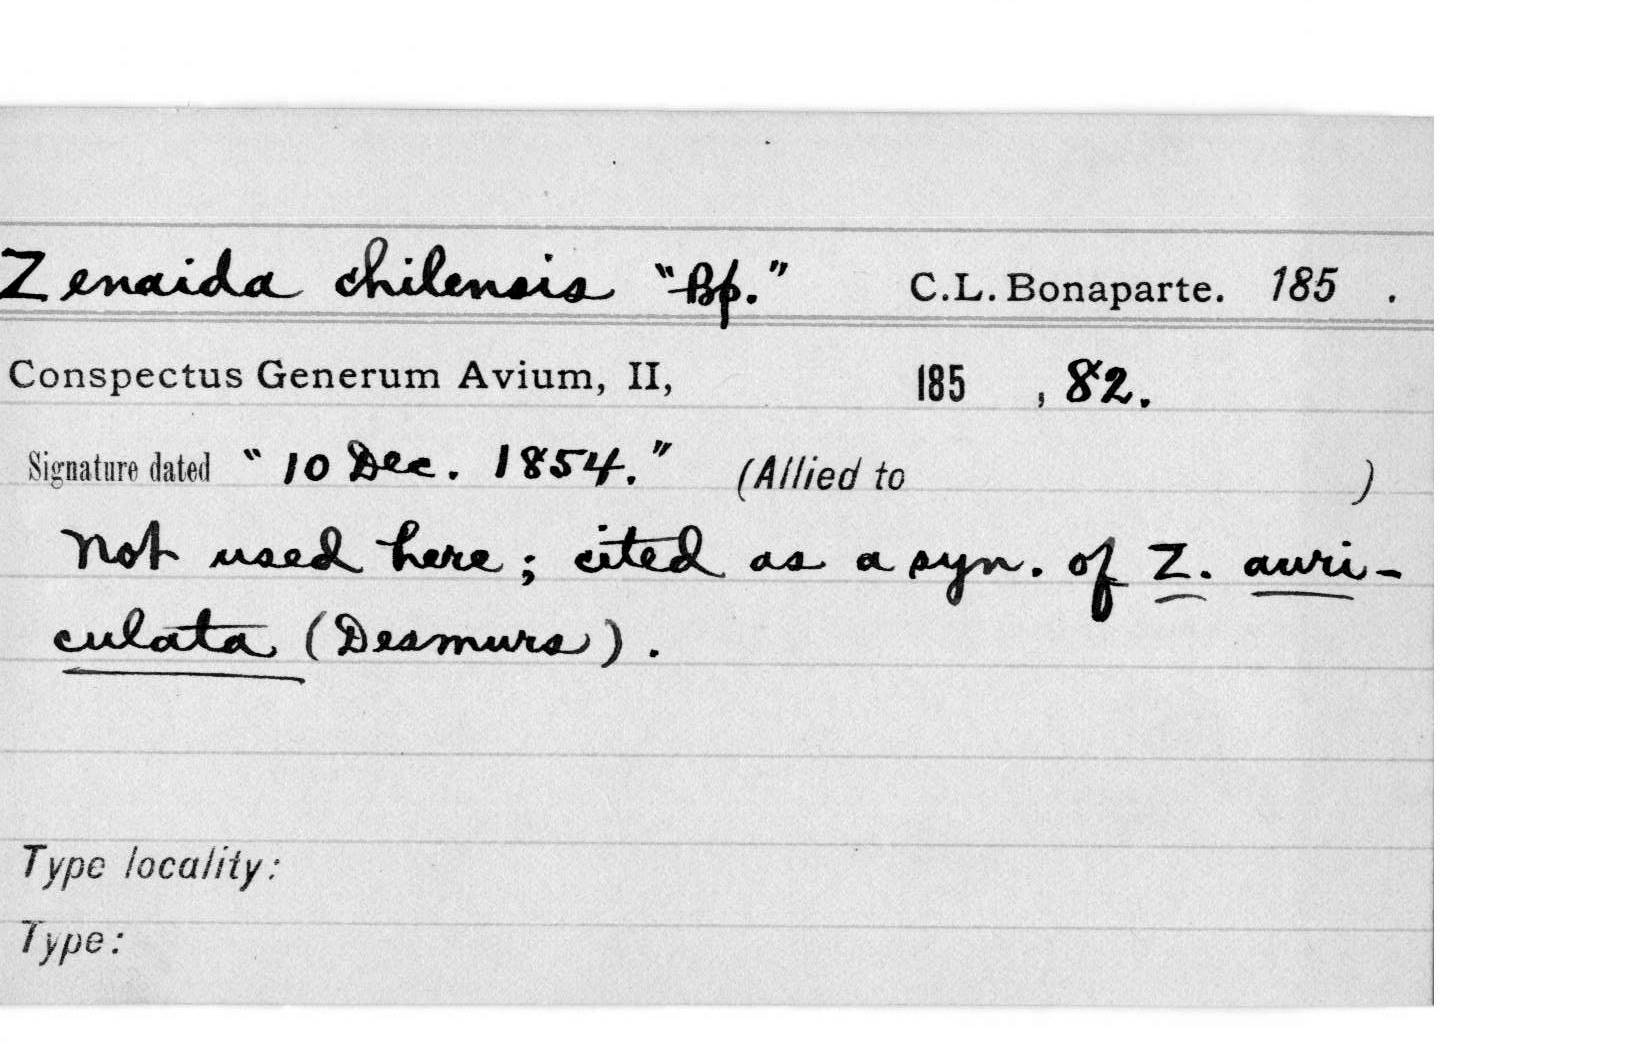 Zenaida chilensis "Bp." C.L. Bonaparte. 185 .
Conspectus Generum Avium, II, 185 , 82.
Signature dated "10 Dec. 1854." (Allied to )
Not used here; cited as a syn. of Z. auri-
culata (Desmurs).
Type locality:
Type: